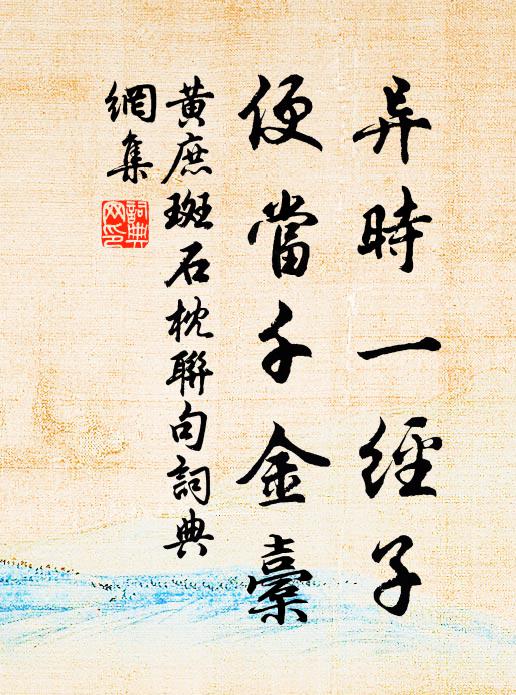 异時一經子
便當千金橐
黄庶斑石枕聯句詞典
網集
詞典网印